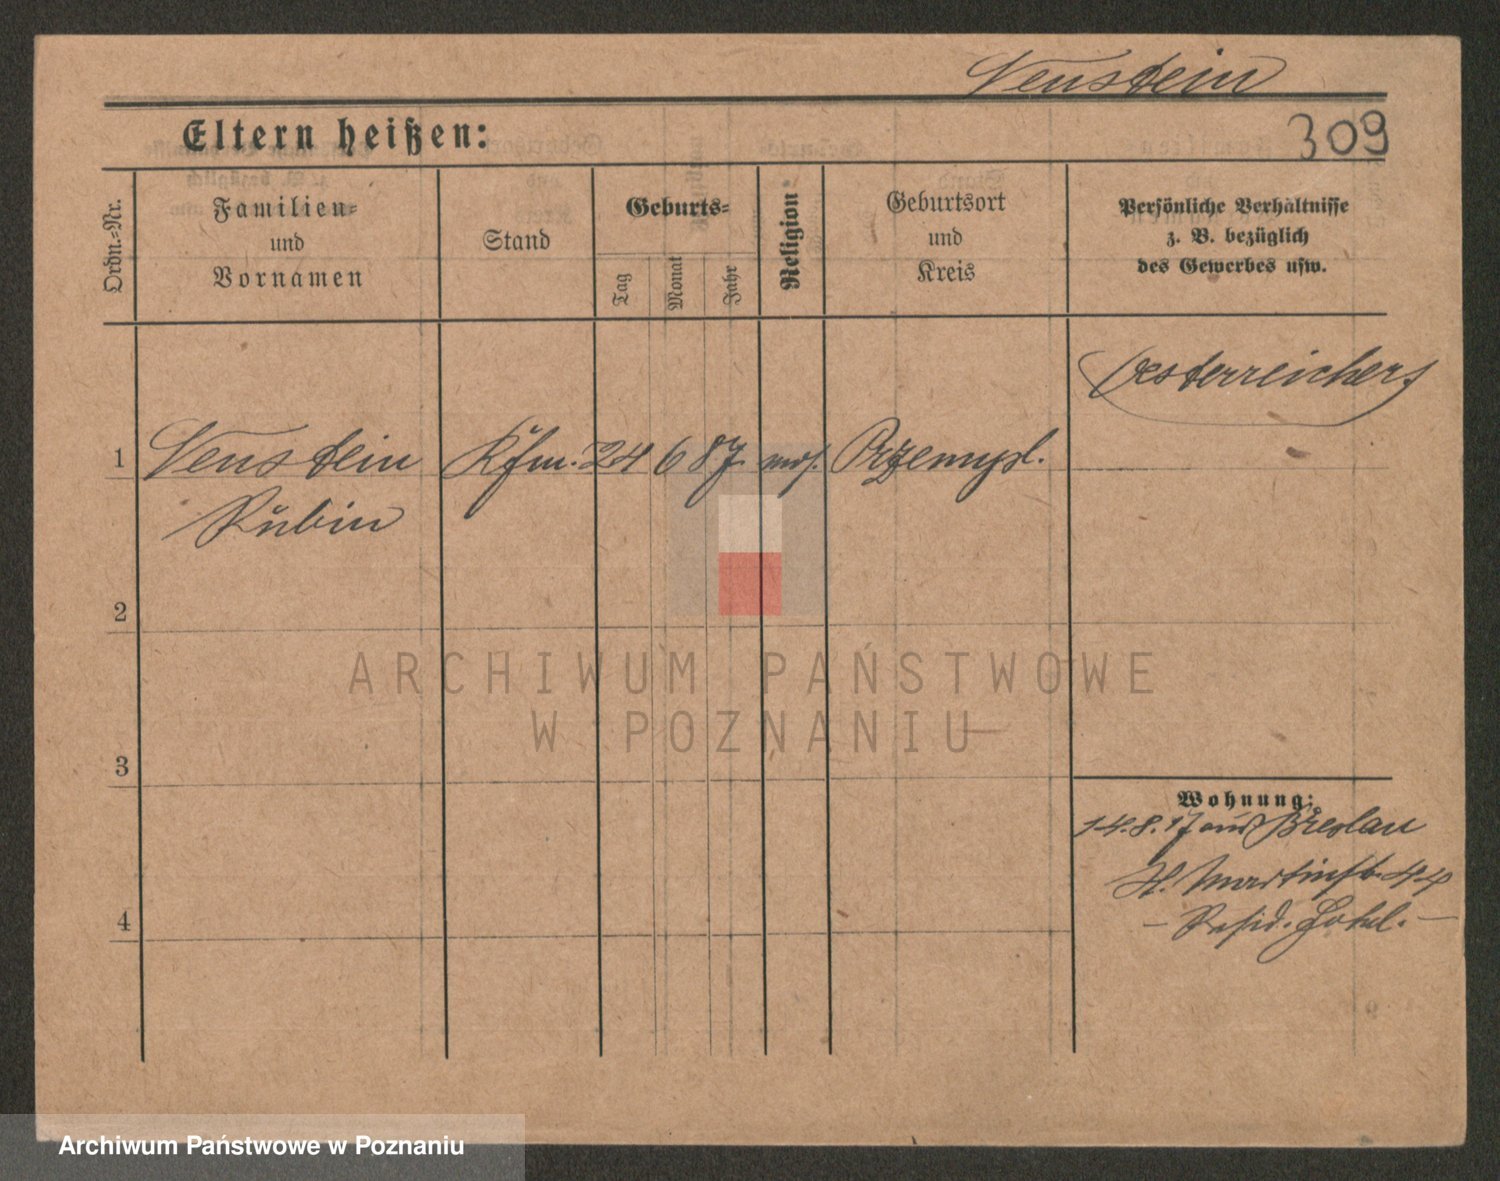 Neustein
Eltern heißen:
309
Ordn.=Nr.
Familien=
und
Vornamen
Stand
Geburts=
Tag
Monat
Jahr
Religion
Geburtsort
und
Kreis
Persönliche Verhältnisse
z. B. bezüglich
des Gewerbes usw.
Oesterreicher
1 Neustein Kfm. 24 6 87. mos. Przemysl.
Rubin
2
3
4
Wohnung:
14.8.17 aus Breslau
St. Martinstr. 44
– Resid. Hotel. –
ARCHIWUM PAŃSTWOWE
W POZNANIU
Archiwum Państwowe w Poznaniu